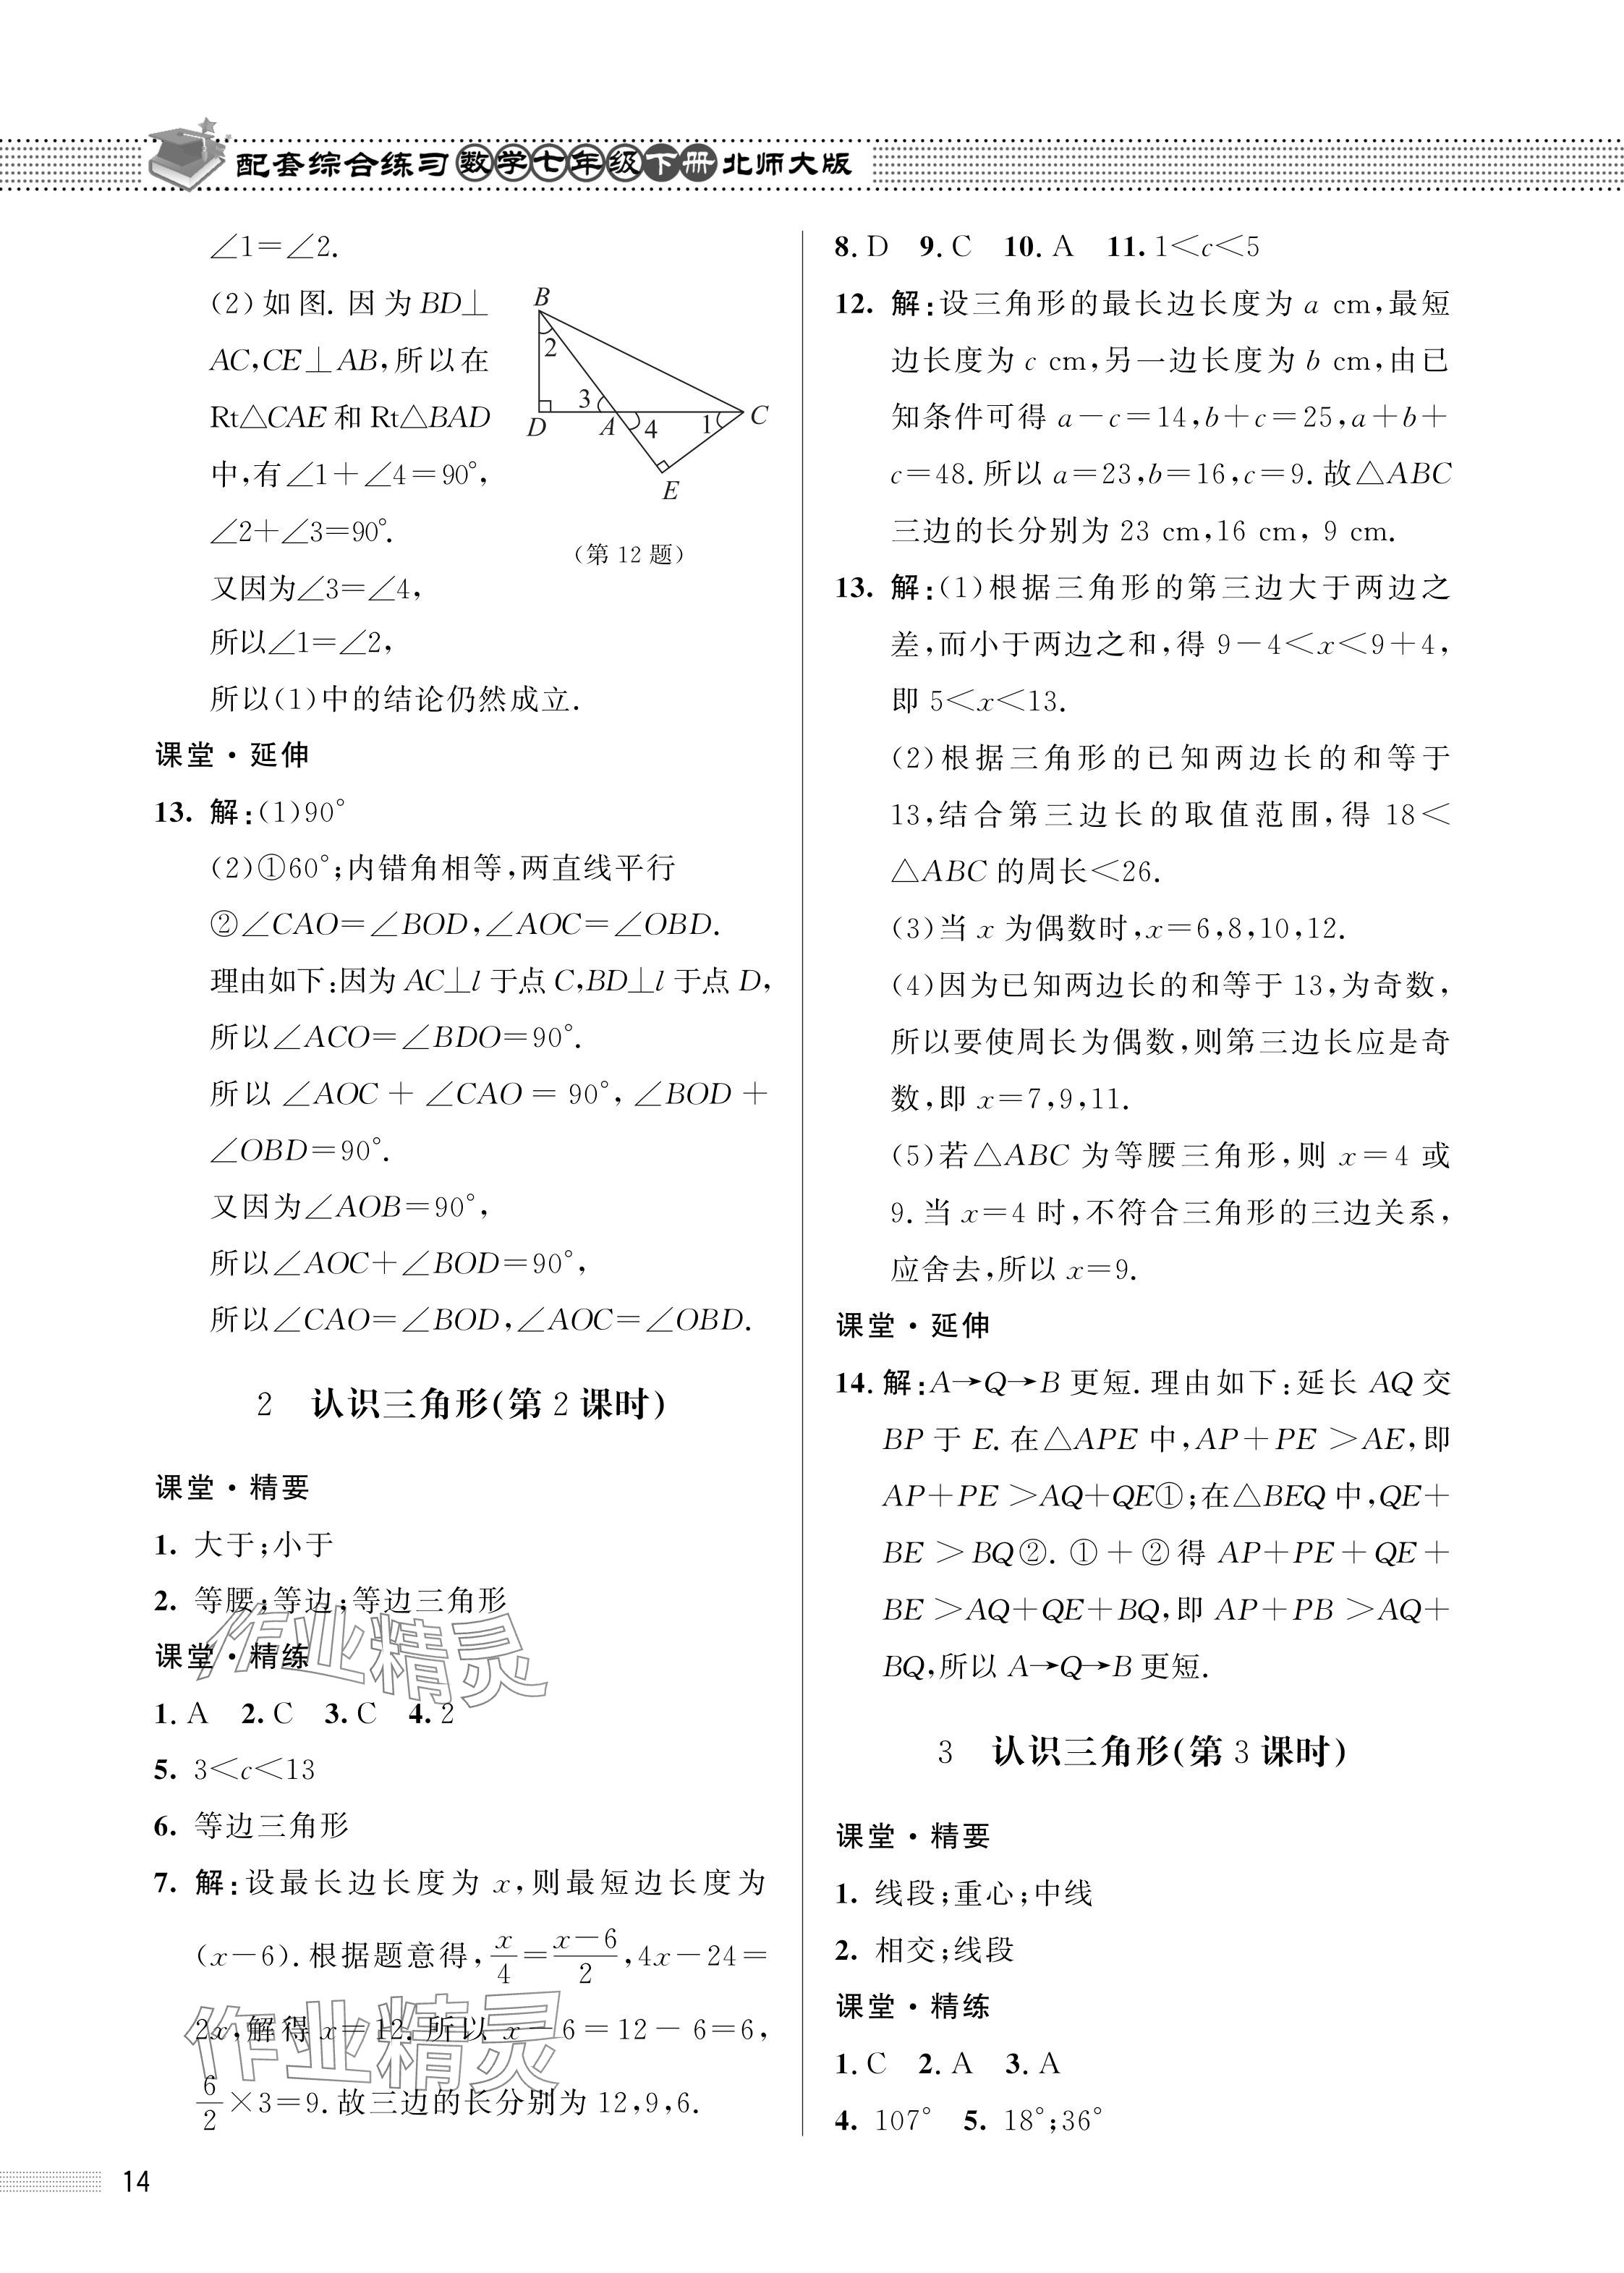 配套综合练习 数学七年级下册 北师大版
∠1=∠2.
(2)如图.因为BD⊥
AC,CE⊥AB,所以在
Rt△CAE和Rt△BAD
中,有∠1+∠4=90°,
∠2+∠3=90°.
又因为∠3=∠4,
所以∠1=∠2,
所以(1)中的结论仍然成立.
B
2
3
D
A
4
1
C
E
(第12题)
课堂·延伸
13. 解:(1)90°
(2)①60°;内错角相等,两直线平行
②∠CAO=∠BOD,∠AOC=∠OBD.
理由如下:因为AC⊥l于点C,BD⊥l于点D,
所以∠ACO=∠BDO=90°.
所以∠AOC+∠CAO=90°,∠BOD+
∠OBD=90°.
又因为∠AOB=90°,
所以∠AOC+∠BOD=90°,
所以∠CAO=∠BOD,∠AOC=∠OBD.
2 认识三角形(第2课时)
课堂·精要
1. 大于;小于
2. 等腰;等边;等边三角形
课堂·精练
1. A 2. C 3. C 4. 2
5. 3<c<13
6. 等边三角形
7. 解:设最长边长度为x,则最短边长度为
(x-6).根据题意得,x/4=(x-6)/2,4x-24=
2x,解得x=12.所以x-6=12-6=6,
6/2×3=9.故三边的长分别为12,9,6.
作业精灵
作业精灵
8. D 9. C 10. A 11. 1<c<5
12. 解:设三角形的最长边长度为a cm,最短
边长度为c cm,另一边长度为b cm,由已
知条件可得a-c=14,b+c=25,a+b+
c=48.所以a=23,b=16,c=9.故△ABC
三边的长分别为23 cm,16 cm, 9 cm.
13. 解:(1)根据三角形的第三边大于两边之
差,而小于两边之和,得9-4<x<9+4,
即5<x<13.
(2)根据三角形的已知两边长的和等于
13,结合第三边长的取值范围,得18<
△ABC的周长<26.
(3)当x为偶数时,x=6,8,10,12.
(4)因为已知两边长的和等于13,为奇数,
所以要使周长为偶数,则第三边长应是奇
数,即x=7,9,11.
(5)若△ABC为等腰三角形,则x=4或
9.当x=4时,不符合三角形的三边关系,
应舍去,所以x=9.
课堂·延伸
14. 解:A→Q→B更短.理由如下:延长AQ交
BP于E.在△APE中,AP+PE>AE,即
AP+PE>AQ+QE①;在△BEQ中,QE+
BE>BQ②.①+②得AP+PE+QE+
BE>AQ+QE+BQ,即AP+PB>AQ+
BQ,所以A→Q→B更短.
3 认识三角形(第3课时)
课堂·精要
1. 线段;重心;中线
2. 相交;线段
课堂·精练
1. C 2. A 3. A
4. 107° 5. 18°;36°
14